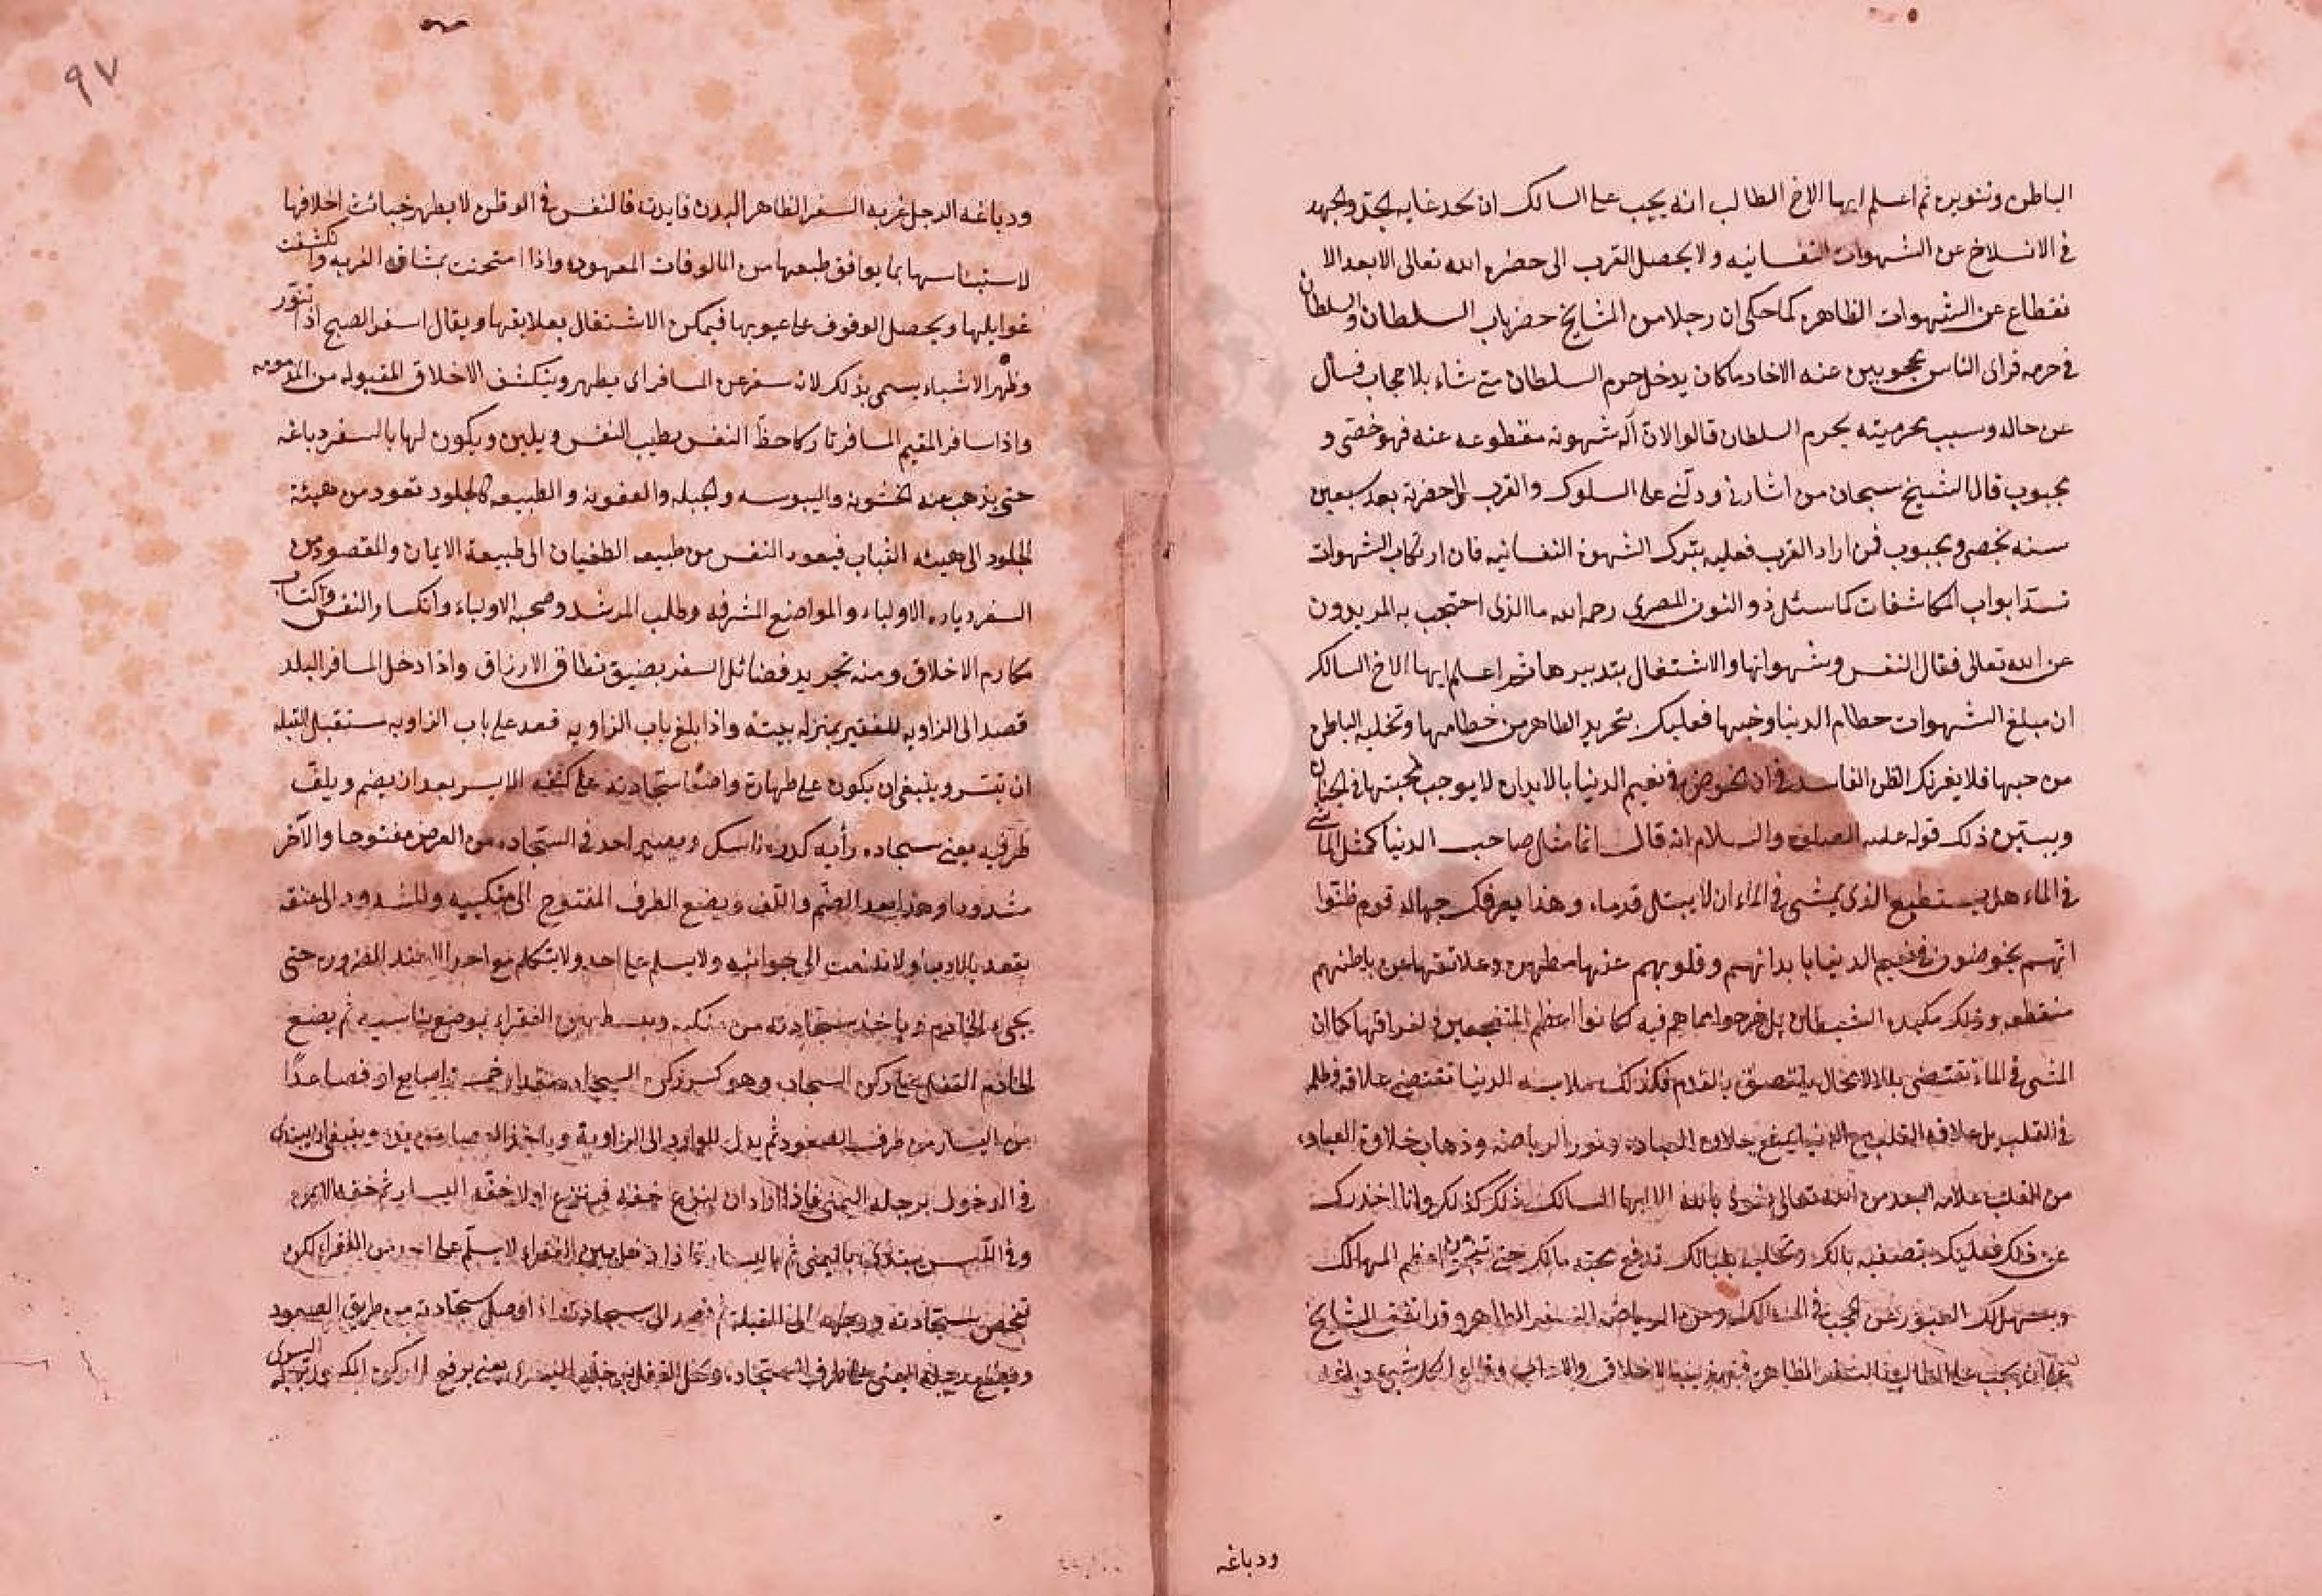 الباطن وتنويره ثم اعلم ايها الاخ الطالب انه يجب على السالك ان يجد غاية الجد والجهد
في الانسلاخ عن الشهوات النفسانيه ولا يحصل القرب الى حضرة الله تعالى الا بعد الا
نقطاع عن الشهوات الظاهره كما حكى ان رجلا من المشايخ حضر باب السلطان والسلطان
في حرمه فراى الناس محجوبين عنه الا خادما كان يدخل حرم السلطان متى شاء بلا حجاب فسأل
عن حاله وسبب محرميته بحرم السلطان قالوا لان آلة شهوته مقطوعه عنه فهو خصّى و
مجبوب قال الشيخ سبحان من اشارنى ودلّنى على السلوك والقرب الى حضرته بعد سبعين
سنه بخصى ومجبوب فمن اراد القرب فعليه بترك الشهوة النفسانيه فان ارتكاب الشهوات
تسدّ ابواب المكاشفات كما سئل ذو النون المصرى رحمه الله ما الذى احتجب به المريدون
عن الله تعالى فقال النفس وشهواتها والاشتغال بتدبيرها ثم اعلم ايها الاخ السالك
ان مبلغ الشهوات حطام الدنيا وحبها فعليك بتجريد الظاهر من حطامها وتخليه الباطن
من حبها فلا يغرنك الظن الفاسد فى ان الخوض فى نعيم الدنيا بالابدان لا يوجب محبتها فى الجنان
ويبيّن ذلك قوله عليه الصلوة والسلام انه قال انما مثل صاحب الدنيا كمثل الماشى
فى الماء هل يستطيع الذى يمشى فى الماء ان لا يبتل قدماه وهذا يعرفك جهالة قوم ظنوا
انهم يخوضون فى نعيم الدنيا بابدانهم وقلوبهم عنها مطهره وعلائقها عن باطنهم
منقطعه وذلك مكيدة الشيطان بل لو خرجوا مما هم فيه لكانوا اعظم المتفجعين لفراقها كما ان
المشى فى الماء تقتضى بللا لا محال يلتصق بالقدم فكذلك ملابسه الدنيا تقتضى علاقة وظلمه
فى القلب بل علاقة القلب مع الدنيا يمنع حلاوة العباده ونور الرياضه وذهاب حلاوة العباده
من القلب علامه البعد من الله تعالى نعوذ بالله الا ايها السالك ذلك كذلك وانا احذرك
عن ذلك فعليك بتصفيه بالك تدفع محبة مالك حتى اعظم المهالك
ويسهل لك العبور عن الحجب فى المسالك ومن الرياضه السفر الظاهر وقد اتفق المشايخ
على انه يجب على الطالب السفر الظاهر الاخلاق لكل شىء دباغه
ودباغه
٩٧
ودباغه الرجل غربه السفر الظاهر البدن فايدته فالنفس فى الوطن لا يظهر خبائث اخلاقها
لاستيناسها بما يوافق طبعها من المالوفات المعهوده واذا امتحنت بمشاق الغربه وانكشفت
غوايلها ويحصل الوقوف على عيوبها فيمكن الاشتغال بعلايقها ويقال اسفر الصبح اذا تنوّر
وظهر الاشياء يسمى بذلك لانه سفر عن المسافر اى يظهر وينكشف الاخلاق المقبوله من المذمومه
واذا سافر المقيم المسافر تاركا حظّ النفس يطيب النفس ويلين ويكون لها بالسفر دباغه
حتى يذهب عنه الخشونه واليبوسه والجبله والعفونه والطبيعه كالجلود تعود من هيئة
الجلود الى هيئه الثياب فيعود النفس من طبيعه الطغيان الى طبيعة الايمان والمقصود من
السفر زياره الاولياء والمواضع المشرفه وطلب المرشد وصحبه الاولياء وانكسار النفس واكتساب
مكارم الاخلاق ومنه تجريد فضائل السفر بضيق نطاق الارزاق واذا دخل المسافر البلد
قصد الى الزاويه للفقير بمنزله بيته واذا بلغ باب الزاويه قعد على باب الزاويه مستقبل القبله
ان تيسر وينبغى ان يكون على طهارة واضعًا سجادته على كتفه الايسر بعد ان يضم ويلفّ
طرفيه يعنى سجاده ويصير احد فى السجاده من العرض مفتوحا والآخر
مشدودا وهذا بعد الضم واللف ويضع الطرف المفتوح الى منكبيه والمشدود الى عنقه
يقعد بالادب ولا تلتفت الى جوانبه ولا يسلم على احد ولا يتكلم مع احد الا عند الضروره حتى
يجىء الخادم وياخذ سجادته من منكبه ويبسط بين الفقراء بوضع يناسبه ثم يضع
الخادم القفل على ركن السجاده وهو كسر ركن السجاده مقدار خمسة اصابع او فصاعدًا
من اليسار من طرف الصعود ثم يدل للوارد الى الزاوية وينبغى ان يبتدى
فى الدخول برجله اليمنى فاذا اراد ان ينزع خفه فينزع اولا خفه اليسار ثم خفه الايمن
وفى اللبس يبتدى باليمنى ثم باليسار فاذا دخل بين الفقراء لا يسلّم على احد من الفقراء لكن
تفحص سجادته ووجهه الى القبلة ثم قصد الى سجادته اذا وصل سجادته من طريق الصعود
ويضع رجله اليمنى على طرف السجاده ويحل القفل يعنى يرفع برجله اليسرى